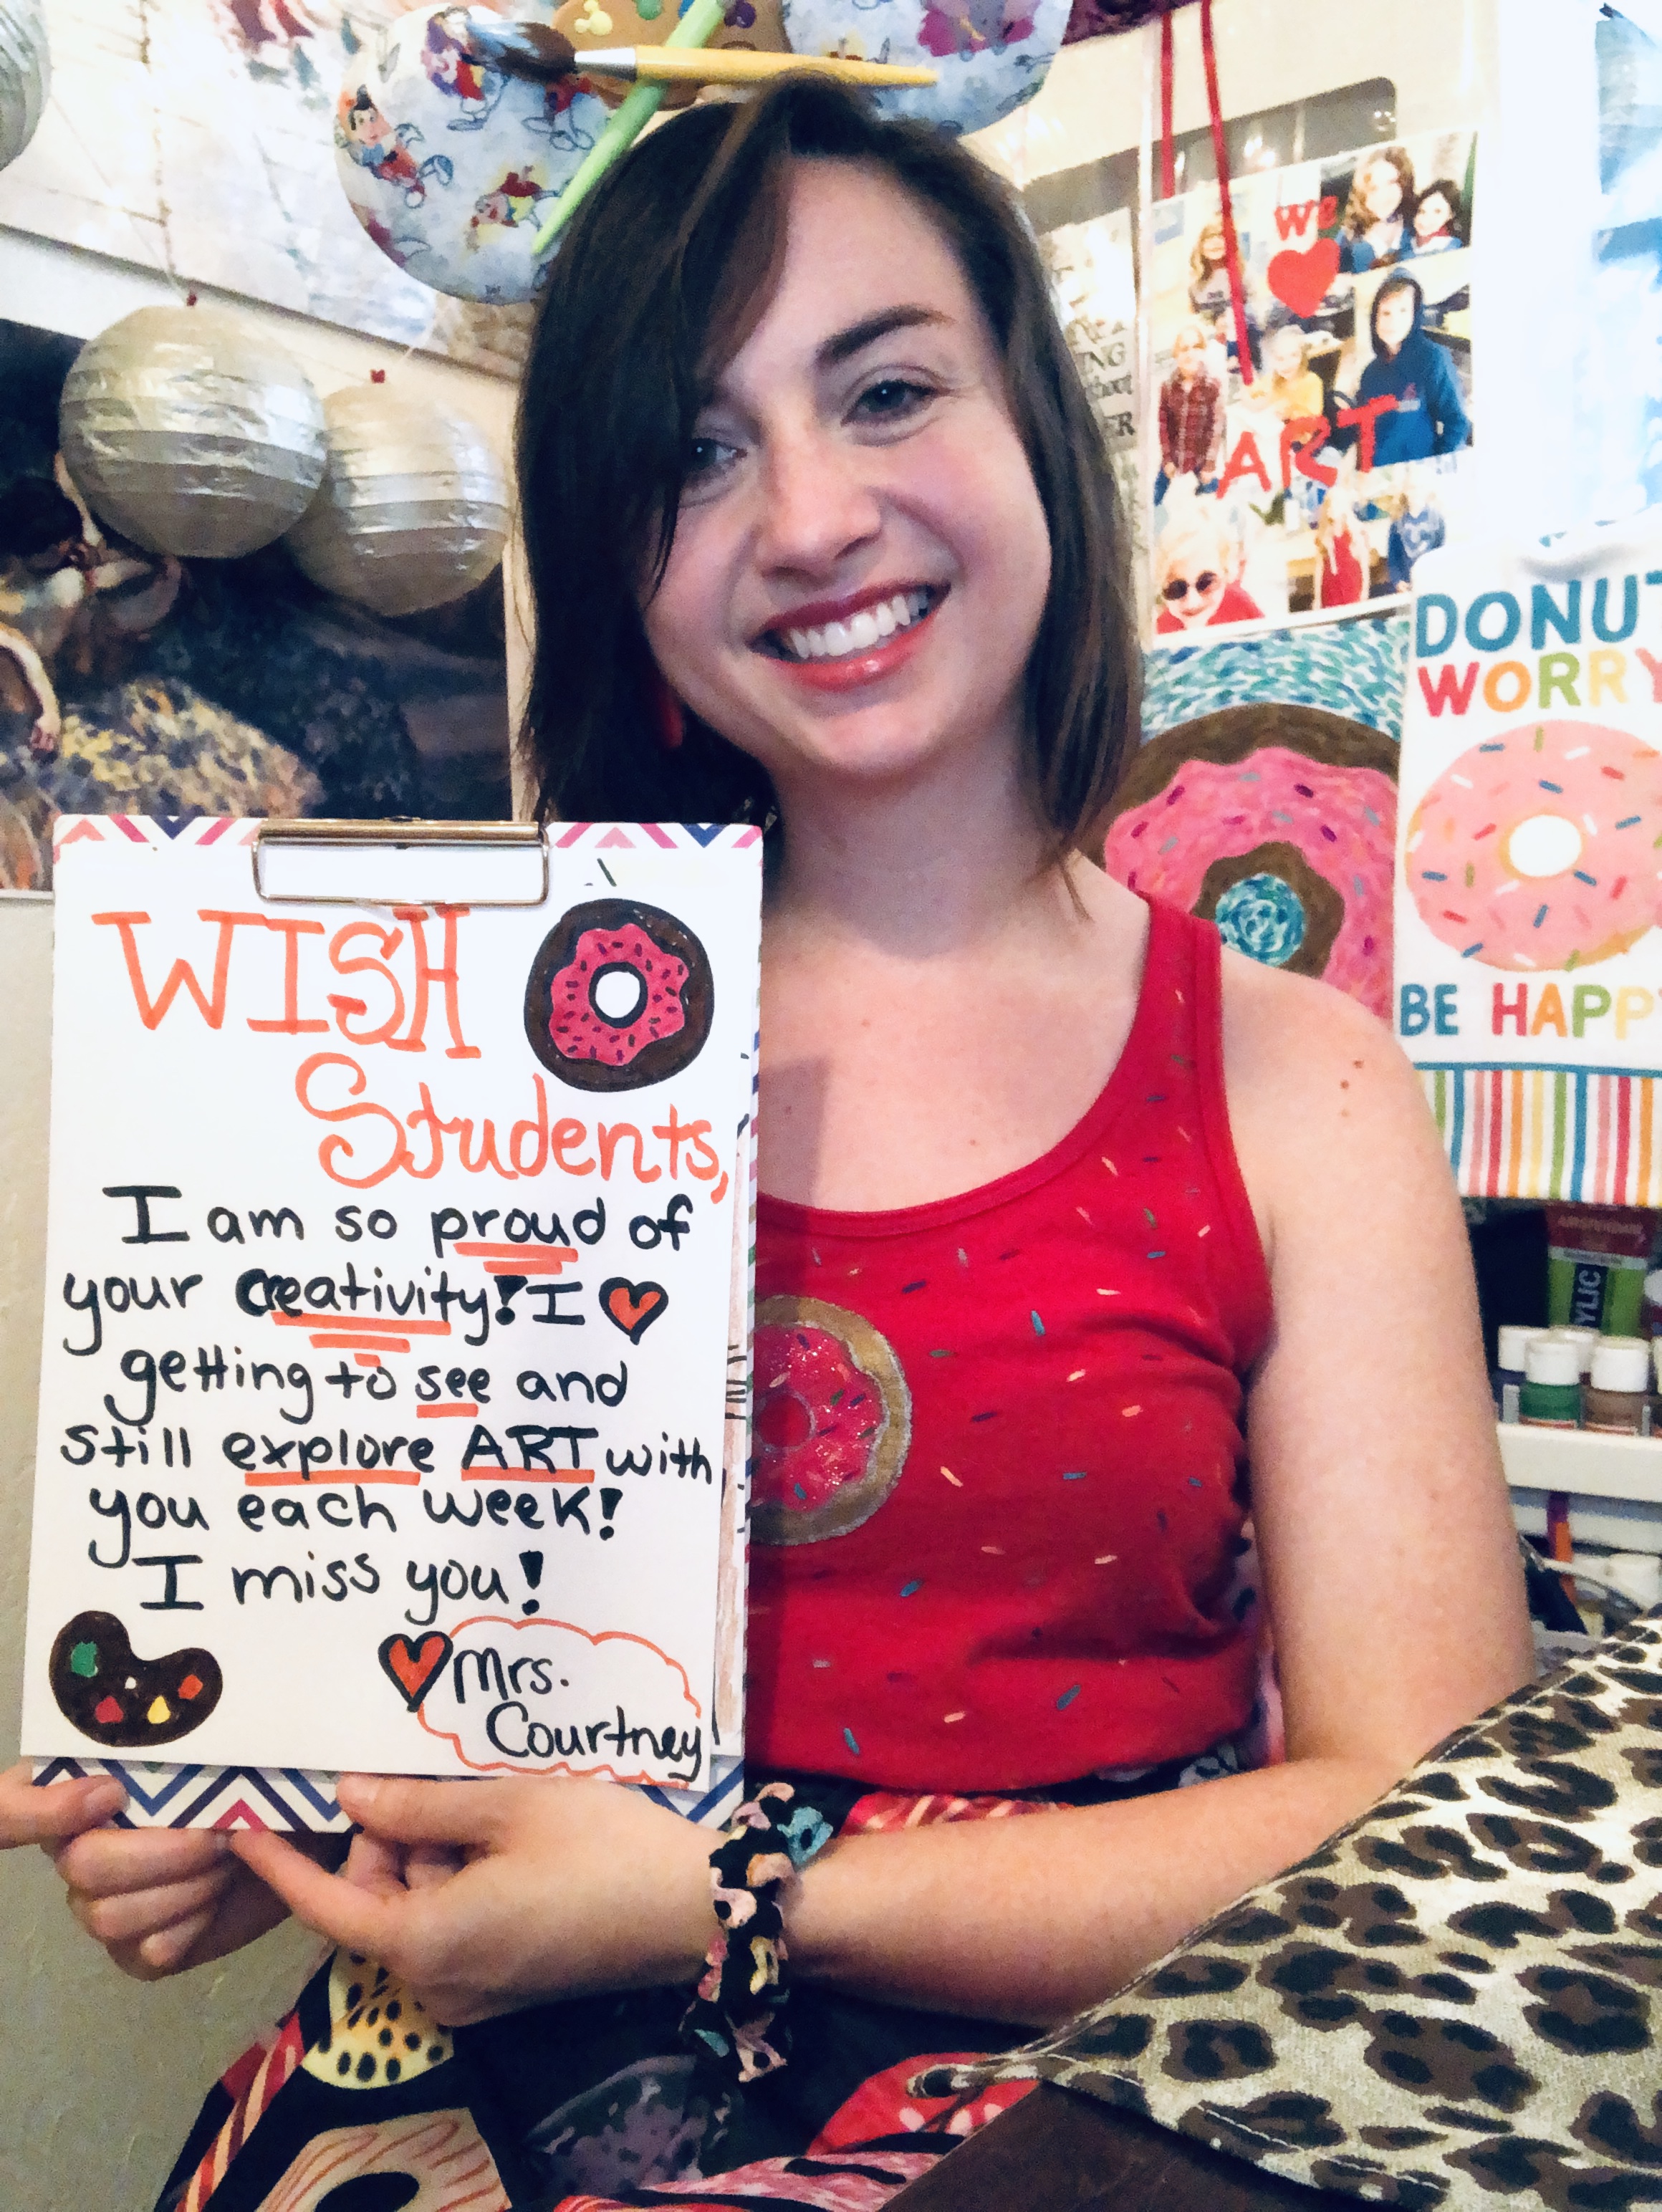 WISH
Students,
I am so proud of
your creativity! I
getting to see and
still explore ART with
you each week!
I miss you!
Mrs.
Courtney
WE
ART
DONUT
WORRY
BE HAPPY